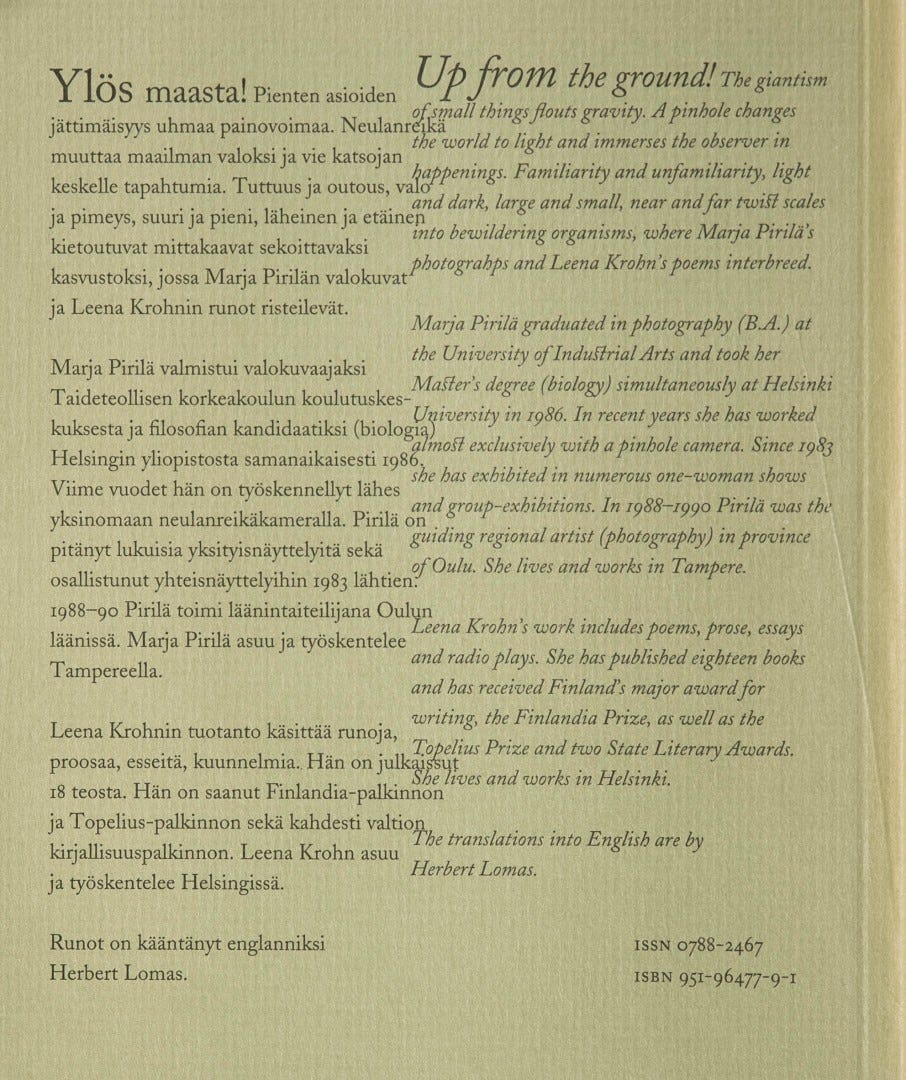 Ylös maasta! Pienten asioiden
jättimäisyys uhmaa painovoimaa. Neulanreikä
muuttaa maailman valoksi ja vie katsojan
keskelle tapahtumia. Tuttuus ja outous, valo
ja pimeys, suuri ja pieni, läheinen ja etäinen
kietoutuvat mittakaavat sekoittavaksi
kasvustoksi, jossa Marja Pirilän valokuvat
ja Leena Krohnin runot risteilevät.
Marja Pirilä valmistui valokuvaajaksi
Taideteollisen korkeakoulun koulutuskes-
kuksesta ja filosofian kandidaatiksi (biologia)
Helsingin yliopistosta samanaikaisesti 1986.
Viime vuodet hän on työskennellyt lähes
yksinomaan neulanreikäkameralla. Pirilä on
pitänyt lukuisia yksityisnäyttelyitä sekä
osallistunut yhteisnäyttelyihin 1983 lähtien.
1988–90 Pirilä toimi läänintaiteilijana Oulun
läänissä. Marja Pirilä asuu ja työskentelee
Tampereella.
Leena Krohnin tuotanto käsittää runoja,
proosaa, esseitä, kuunnelmia. Hän on julkaissut
18 teosta. Hän on saanut Finlandia-palkinnon
ja Topelius-palkinnon sekä kahdesti valtion
kirjallisuuspalkinnon. Leena Krohn asuu
ja työskentelee Helsingissä.
Runot on kääntänyt englanniksi
Herbert Lomas.
Up from the ground! The giantism
of small things flouts gravity. A pinhole changes
the world to light and immerses the observer in
happenings. Familiarity and unfamiliarity, light
and dark, large and small, near and far twist scales
into bewildering organisms, where Marja Pirilä's
photograhps and Leena Krohn's poems interbreed.
Marja Pirilä graduated in photography (B.A.) at
the University of Industrial Arts and took her
Master's degree (biology) simultaneously at Helsinki
University in 1986. In recent years she has worked
almost exclusively with a pinhole camera. Since 1983
she has exhibited in numerous one-woman shows
and group-exhibitions. In 1988–1990 Pirilä was the
guiding regional artist (photography) in province
of Oulu. She lives and works in Tampere.
Leena Krohn's work includes poems, prose, essays
and radio plays. She has published eighteen books
and has received Finland's major award for
writing, the Finlandia Prize, as well as the
Topelius Prize and two State Literary Awards.
She lives and works in Helsinki.
The translations into English are by
Herbert Lomas.
ISSN 0788-2467
ISBN 951-96477-9-1